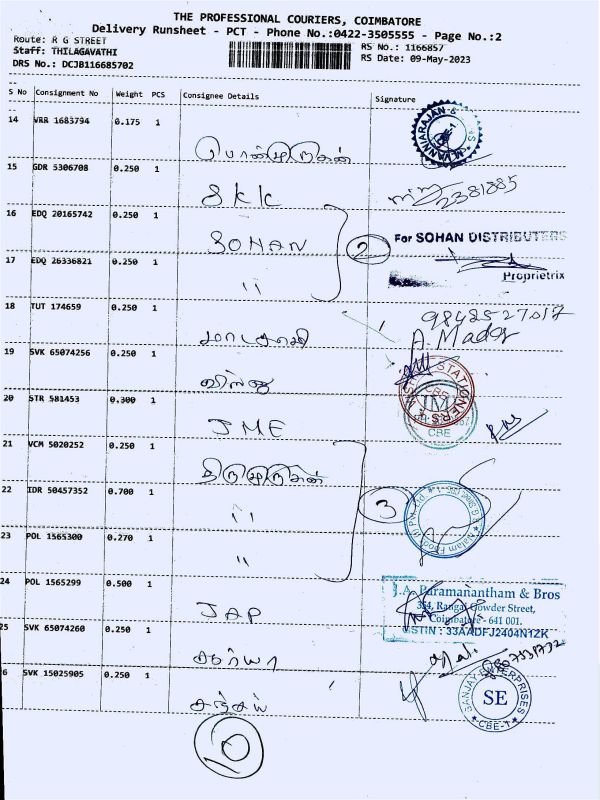 THE PROFESSIONAL COURIERS, COIMBATORE
Delivery Runsheet - PCT - Phone No.:0422-3505555 - Page No.:2
Route: R G STREET
Staff: THILAGAVATHI
DRS No.: DCJB116685702
RS No.: 1166857
RS Date: 09-May-2023
S No Consignment No Weight PCS Consignee Details Signature
14 VRR 1683794 0.175 1
பொன்முருகன்
15 GDR 5306708 0.250 1
SKK
2381885
16 EDQ 20165742 0.250 1
SOHAN
2
For SOHAN DISTRIBUTERS
Proprietrix
17 EDQ 26336821 0.250 1
"
18 TUT 174659 0.250 1
9842527017
A. Mado
19 SVK 65074256 0.250 1
விஸ்ணு
STATIONERS
20 STR 581453 0.300 1
JME
JM
CBE
21 VCM 5020252 0.250 1
திருமுருகன்
22 IDR 50457352 0.700 1
"
3
23 POL 1565300 0.270 1
"
24 POL 1565299 0.500 1
JAP
J.A. Paramanantham & Bros
354, Rangai Gowder Street,
Coimbatore - 641 001.
GSTIN : 33AADFJ2404N1ZK
25 SVK 65074260 0.250 1
சூர்யா
6 SVK 15025905 0.250 1
சஞ்சய்
SANJAY ENTERPRISES
SE
CBE-1
10